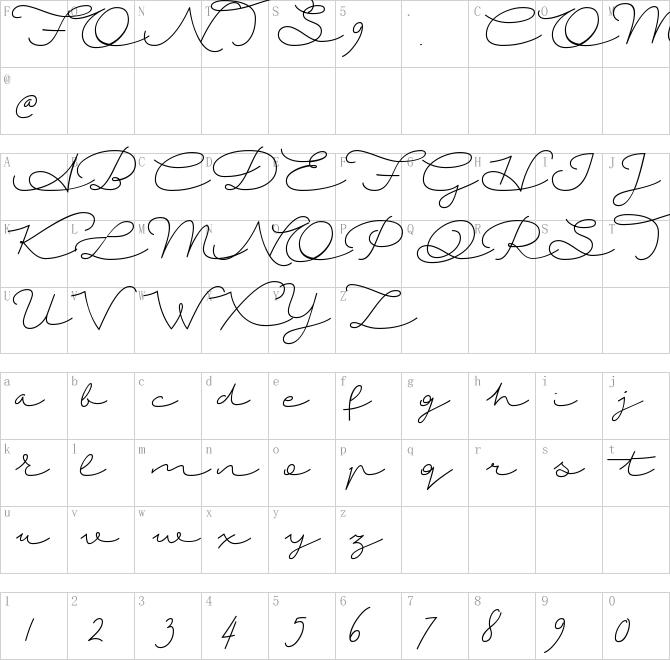 F O N T S 5 . C O M
F O N T S 9 . C O M
@
@
A B C D E F G H I J
A B C D E F G H I J
K L M N O P Q R S T
K L M N O P Q R S T
U V W X Y Z
U V W X Y Z
a b c d e f g h i j
a b c d e f g h i j
k l m n o p q r s t
k l m n o p q r s t
u v w x y z
u v w x y z
1 2 3 4 5 6 7 8 9 0
1 2 3 4 5 6 7 8 9 0